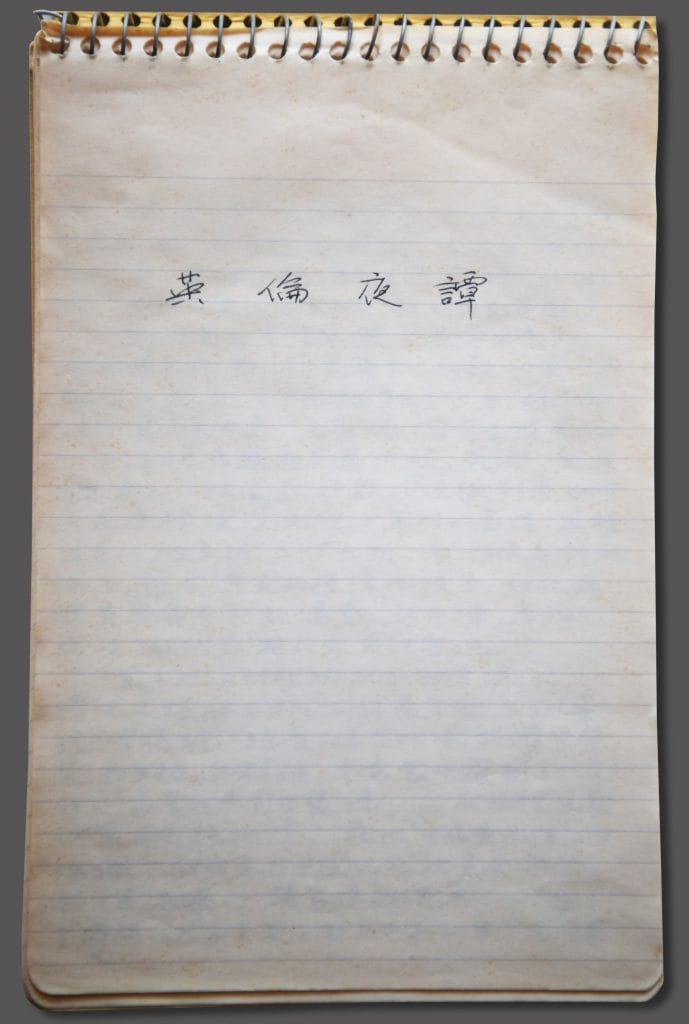 英倫夜譚